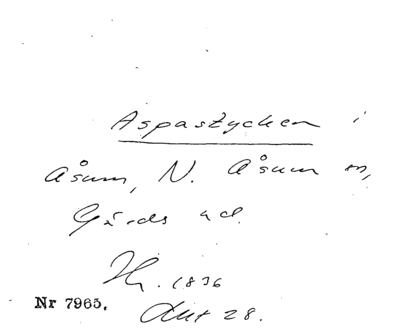 Aspastycken i
Åsum, N. Åsum sn,
Gärds hd.
1836
Nr 7965. Akt 28.